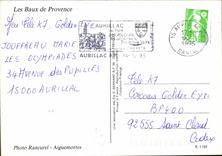 Les Baux de Provence
Jeu Télé K7. Golden
JOUFFREAU MARIE
LES OLYMPIADES
34 Avenue des PUPILLES
15000 AURILLAC
AURILLAC
AURILLAC
Télé K7
Concours Golden
BP 400
92555 Saint Cloud
Cedex
Photo Rancurel - Aiguemortes